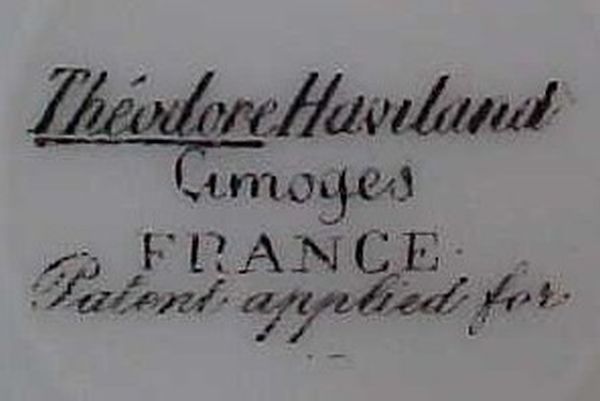 Théodore Haviland
Limoges
FRANCE
Patent applied for